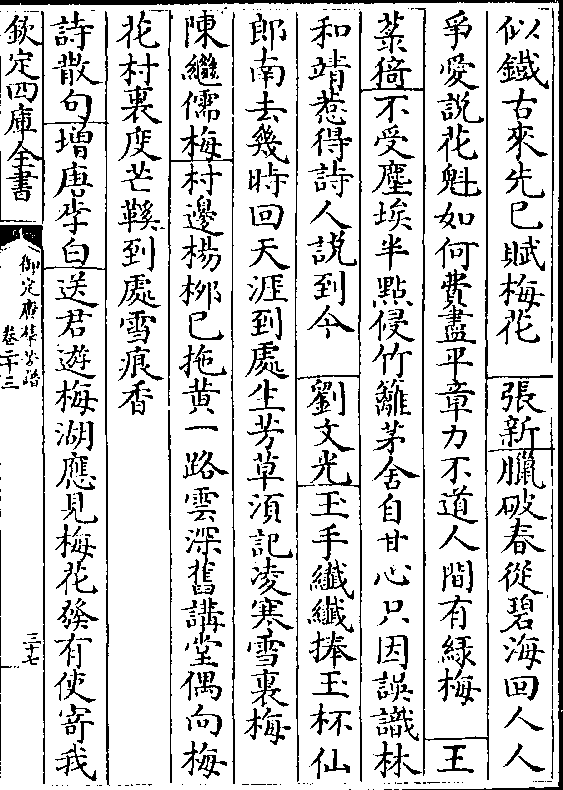 似鐵古來先已賦梅花　張新臘破春從碧海回人人
爭愛說花魁如何費盡平章力不道人間有緑梅　王
蕖猗不受塵埃半點侵竹籬茅舍自甘心只因誤識林
和靖惹得詩人說到今　劉文光玉手纖纖捧玉杯仙
郎南去幾時回天涯到處生芳草須記凌寒雪裏梅
陳繼儒梅村邊楊栁已拖黄一路雲深舊講堂偶向梅
花村裏度芒鞵到處雪痕香
詩散句增唐李白送君遊梅湖應見梅花發有使寄我
欽定四庫全書
御定廣羣芳譜
卷二十三
三十七